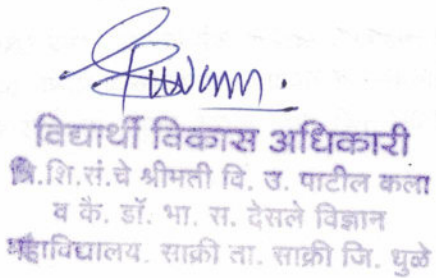 विद्यार्थी विकास अधिकारी
वि.शि.सं.चे श्रीमती वि. उ. पाटील कला
व कै. डॉ. भा. स. देसले विज्ञान
महाविद्यालय. साक्री ता. साक्री जि. धुळे